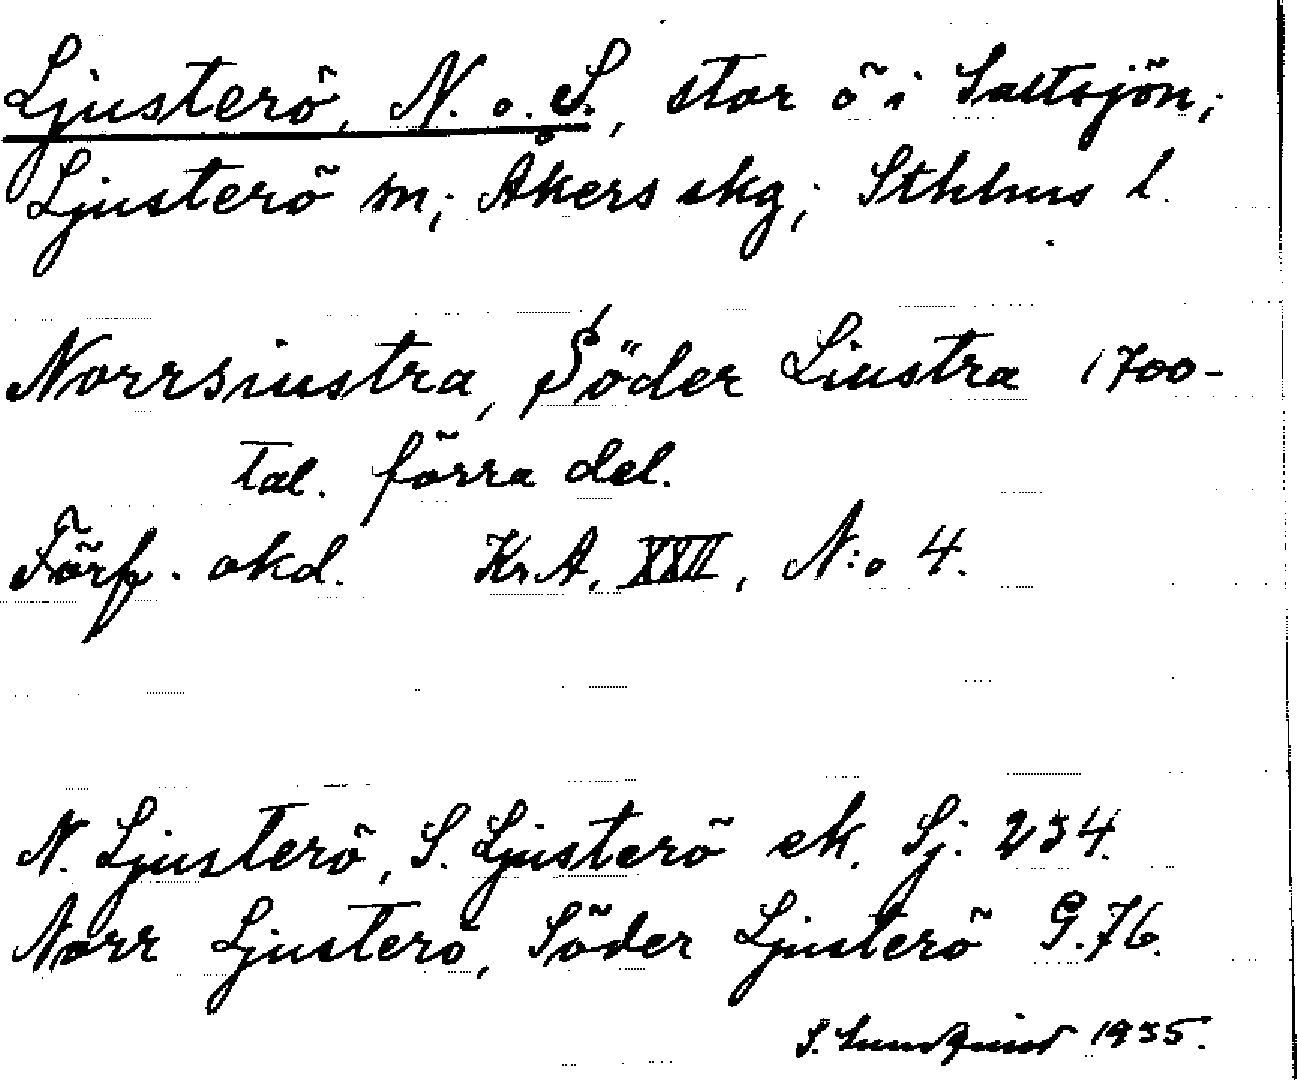 Ljusterö, N. o. S., stor ö i Saltsjön;
Ljusterö sn; Åkers skg; Sthlms l.
Norrsiustra, Söder Liustra 1700-
tal. förra del.
Förf. okd. Kr.A. XXII, N:o 4.
N. Ljusterö, S. Ljusterö ek. Sj. 234.
Norr Ljusterö, Söder Ljusterö G. 76.
S. 1935.